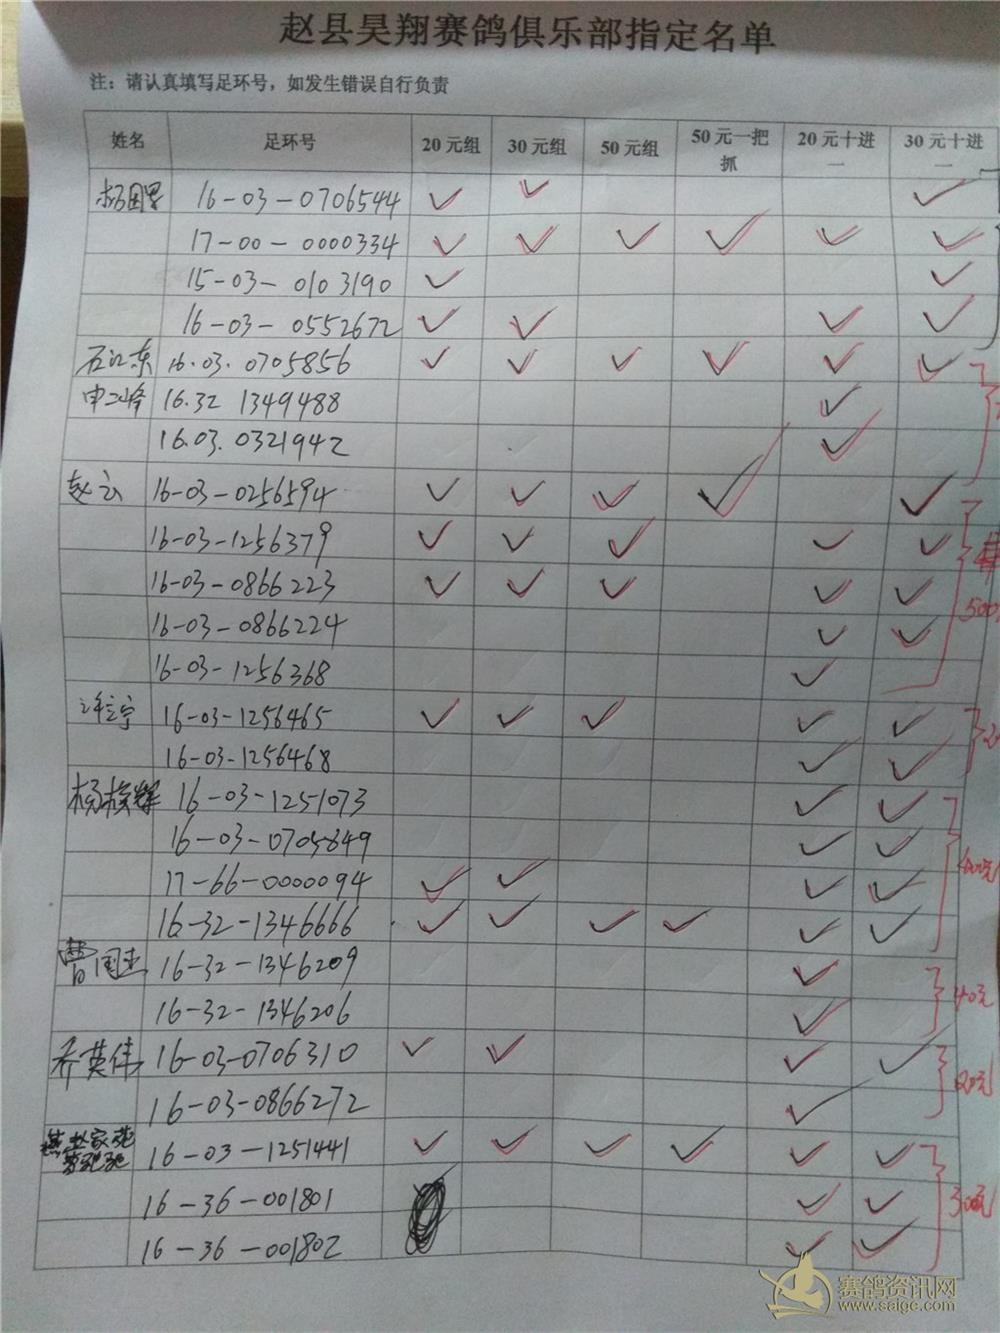 赵县昊翔赛鸽俱乐部指定名单
注：请认真填写足环号，如发生错误自行负责
姓名 足环号 20元组 30元组 50元组 50元一把抓 20元十进一 30元十进一
16-03-0706544 ✓ ✓ ✓
17-00-0000334 ✓ ✓ ✓ ✓ ✓ ✓
15-03-0103190 ✓ ✓
16-03-0552672 ✓ ✓ ✓ ✓
石江东 16.03.0705856 ✓ ✓ ✓ ✓ ✓ ✓
申二峰 16.32 1349488 ✓
16.03.0321942 ✓
赵云 16-03-0256594 ✓ ✓ ✓ ✓ ✓
16-03-1256379 ✓ ✓ ✓ ✓ ✓
16-03-0866223 ✓ ✓ ✓ ✓ ✓
500
16-03-0866224 ✓ ✓
16-03-1256368 ✓
16-03-1256465 ✓ ✓ ✓ ✓ ✓
16-03-1256468 ✓ ✓
16-03-1251073 ✓ ✓
16-03-0705849 ✓ ✓
17-66-0000094 ✓ ✓ ✓ ✓
16-32-1346666 ✓ ✓ ✓ ✓ ✓ ✓
曹国杰 16-32-1346209 ✓
40元
16-32-1346206 ✓
乔英伟 16-03-0706310 ✓ ✓ ✓ ✓
16-03-0866272 ✓
16-03-1251441 ✓ ✓ ✓ ✓ ✓ ✓
16-36-001801 ✓ ✓
300元
16-36-001802 ✓ ✓
赛鸽资讯网
www.saige.com